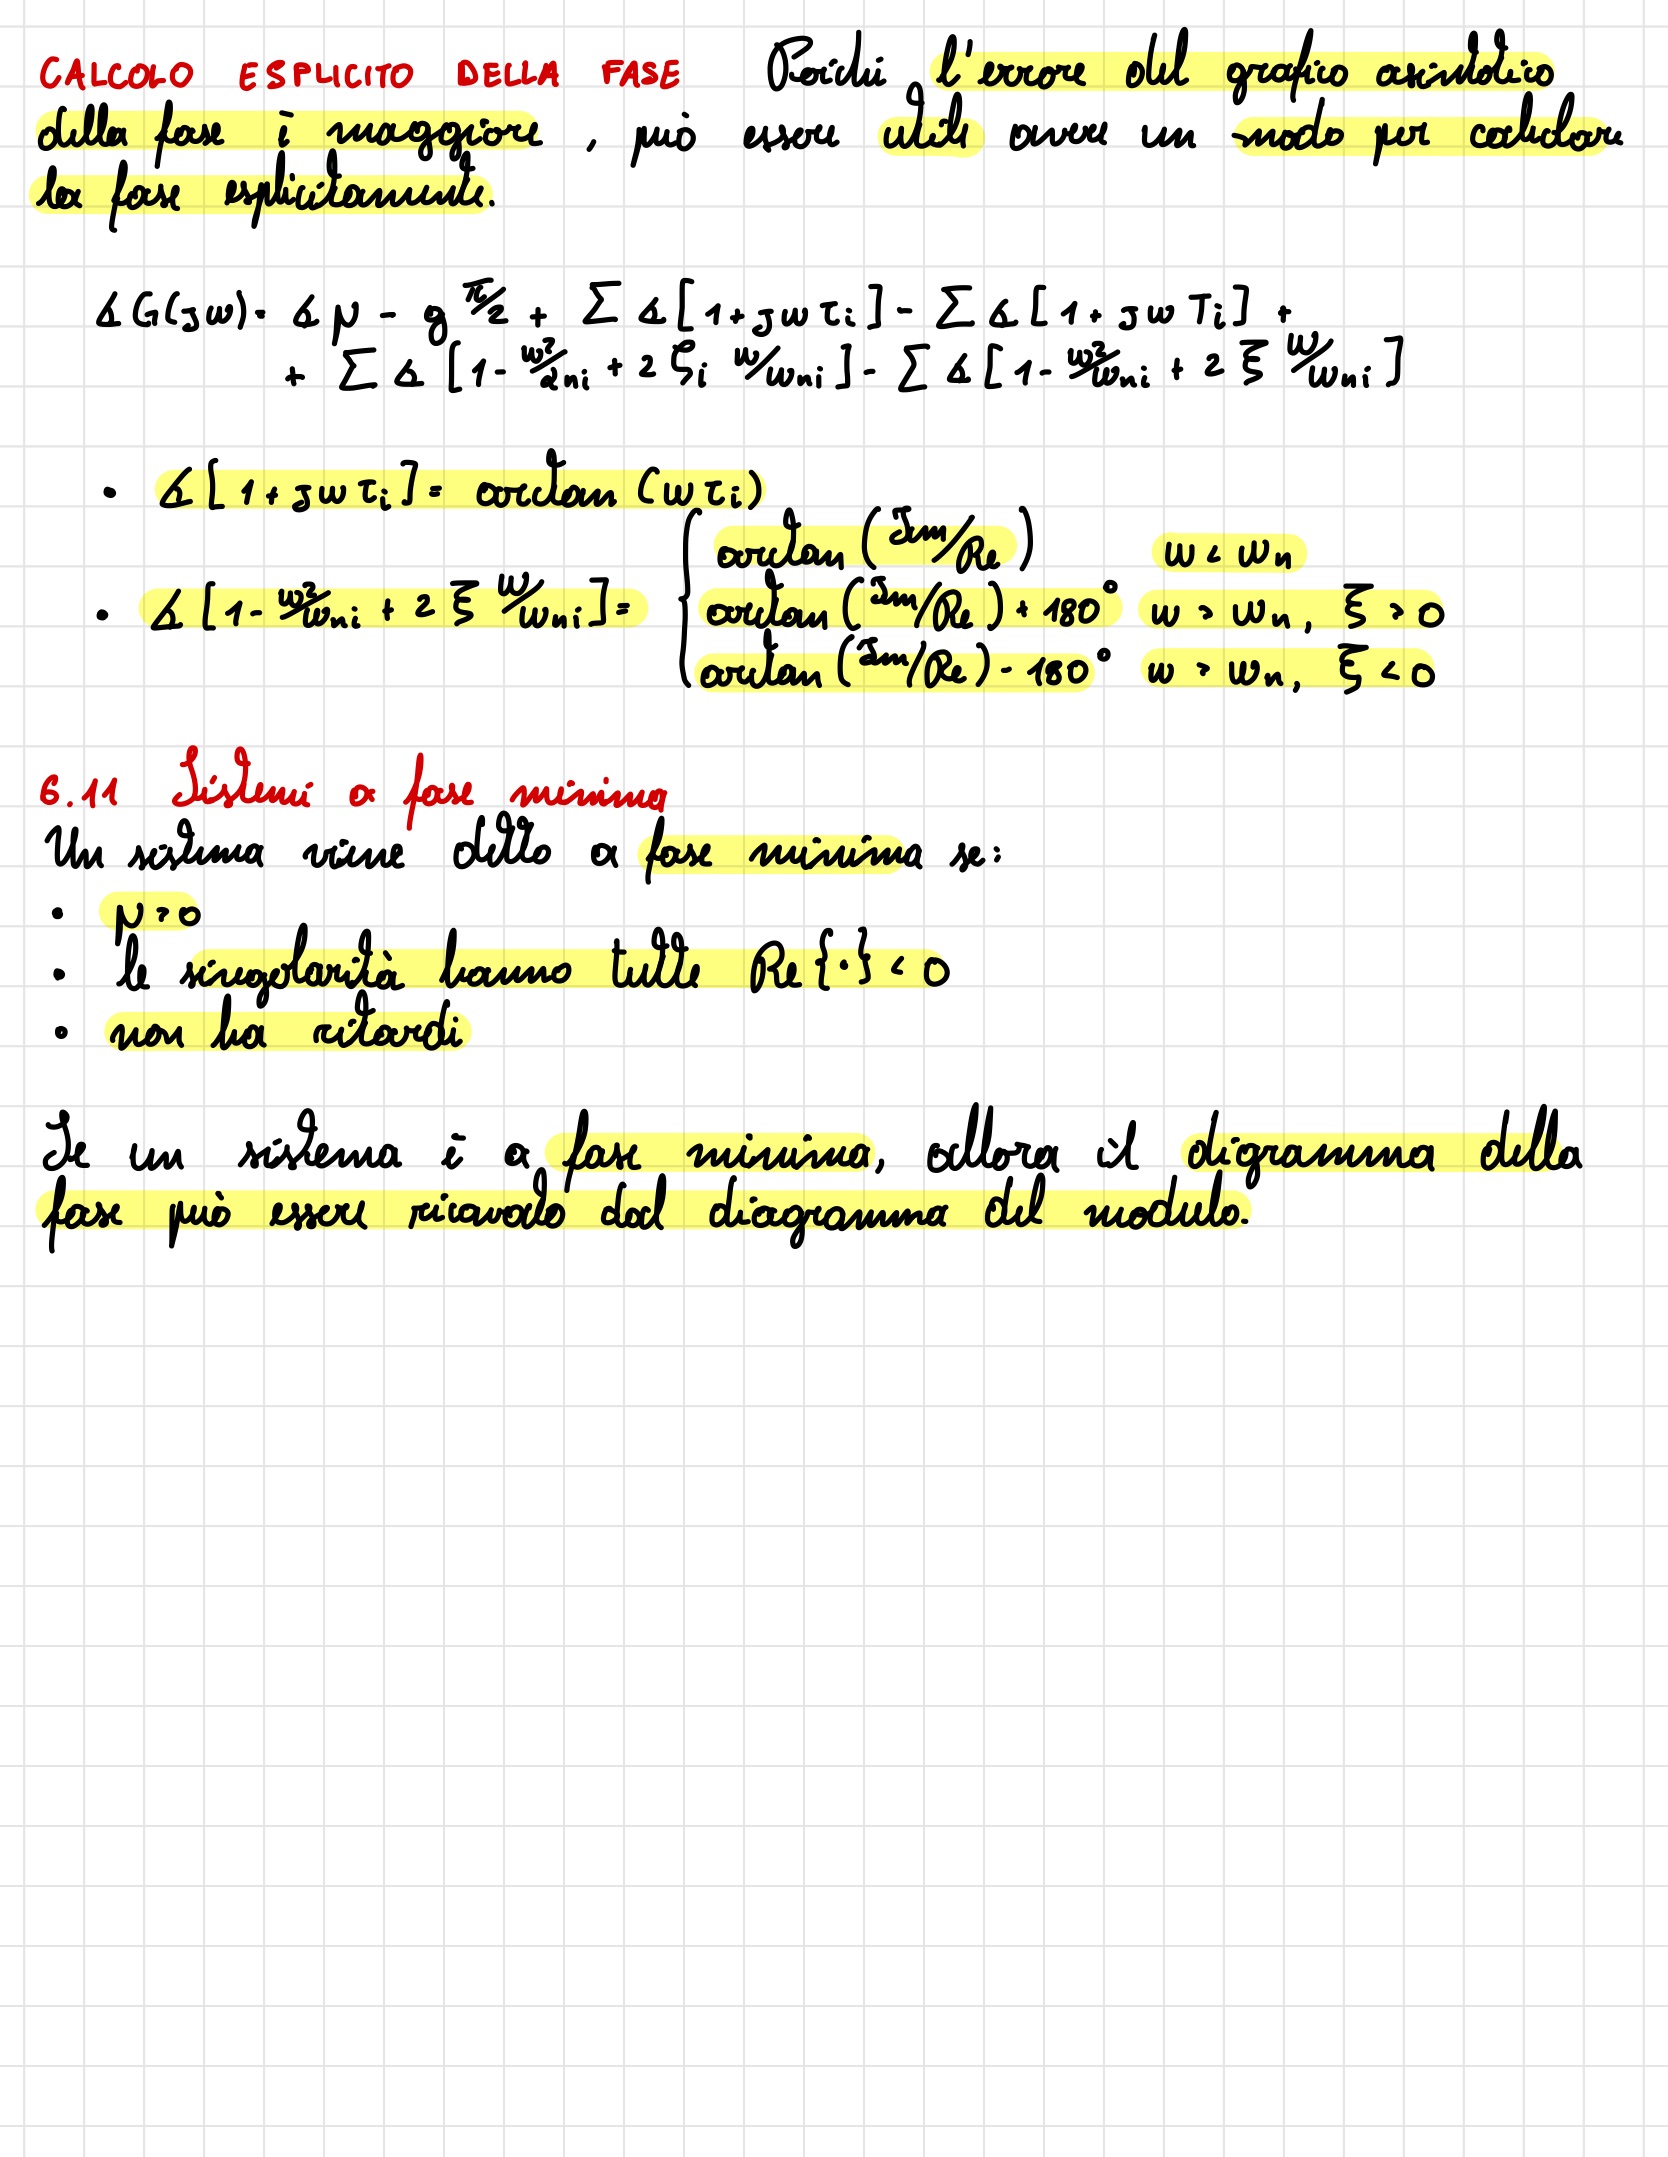 CALCOLO ESPLICITO DELLA FASE Poiché l'errore del grafico asintotico
della fase è maggiore, può essere utile avere un modo per calcolare
la fase esplicitamente.
∡G(jω) = ∡μ - g π/2 + Σ∡[1+jωτi] - Σ∡[1+jωTi] +
+ Σ∡[1-ω²/αni + 2ζi ω/ωni] - Σ∡[1-ω²/ωni + 2ξ ω/ωni]
• ∡[1+jωτi] = arctan(ωτi)
arctan(Im/Re) ω < ωn
• ∡[1-ω²/ωni + 2ξ ω/ωni] = { arctan(Im/Re) + 180° ω > ωn, ξ > 0
arctan(Im/Re) - 180° ω > ωn, ξ < 0
6.11 Sistemi a fase minima
Un sistema viene detto a fase minima se:
• μ > 0
• le singolarità hanno tutte Re{·} < 0
• non ha ritardi
Se un sistema è a fase minima, allora il digramma della
fase può essere ricavato dal diagramma del modulo.